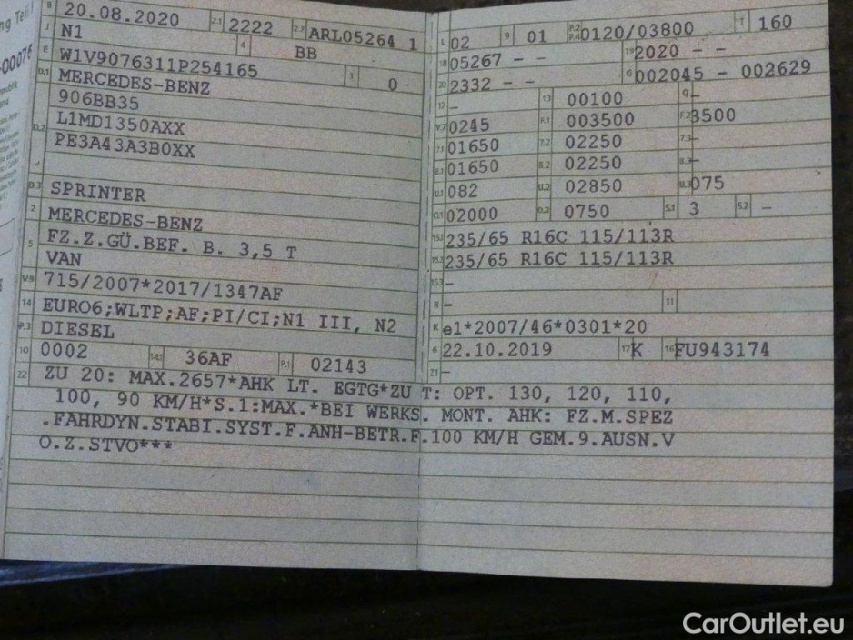 B 20.08.2020 2.1 2222 2.2 ARL05264 1
J N1 4 BB
E W1V9076311P254165 3 0
D.1 MERCEDES-BENZ
906BB35
D.2 L1MD1350AXX
PE3A43A3B0XX
D.3 SPRINTER
2 MERCEDES-BENZ
5 FZ.Z.GÜ.BEF. B. 3,5 T
VAN
V.9 715/2007*2017/1347AF
14 EURO6;WLTP;AF;PI/CI;N1 III, N2
P.3 DIESEL
10 0002 14.1 36AF P.1 02143
L 02 9 01 P.2 P.4 0120/03800 T 160
18 05267 - - 19 2020 - -
20 2332 - - G 002045 - 002629
12 - 13 00100 Q -
V.7 0245 F.1 003500 F.2 3500
7.1 01650 7.2 02250 7.3 -
8.1 01650 8.2 02250 8.3 -
U.1 082 U.2 02850 U.3 075
O.1 02000 O.2 0750 S.1 3 S.2 -
15.1 235/65 R16C 115/113R
15.2 235/65 R16C 115/113R
15.3 -
R - 11
K e1*2007/46*0301*20
6 22.10.2019 17 K 16 FU943174
21 -
22 ZU 20: MAX.2657*AHK LT. EGTG*ZU T: OPT. 130, 120, 110,
100, 90 KM/H*S.1:MAX.*BEI WERKS. MONT. AHK: FZ.M.SPEZ
.FAHRDYN.STABI.SYST.F.ANH-BETR.F.100 KM/H GEM.9.AUSN.V
O.Z.STVO***
CarOutlet.eu